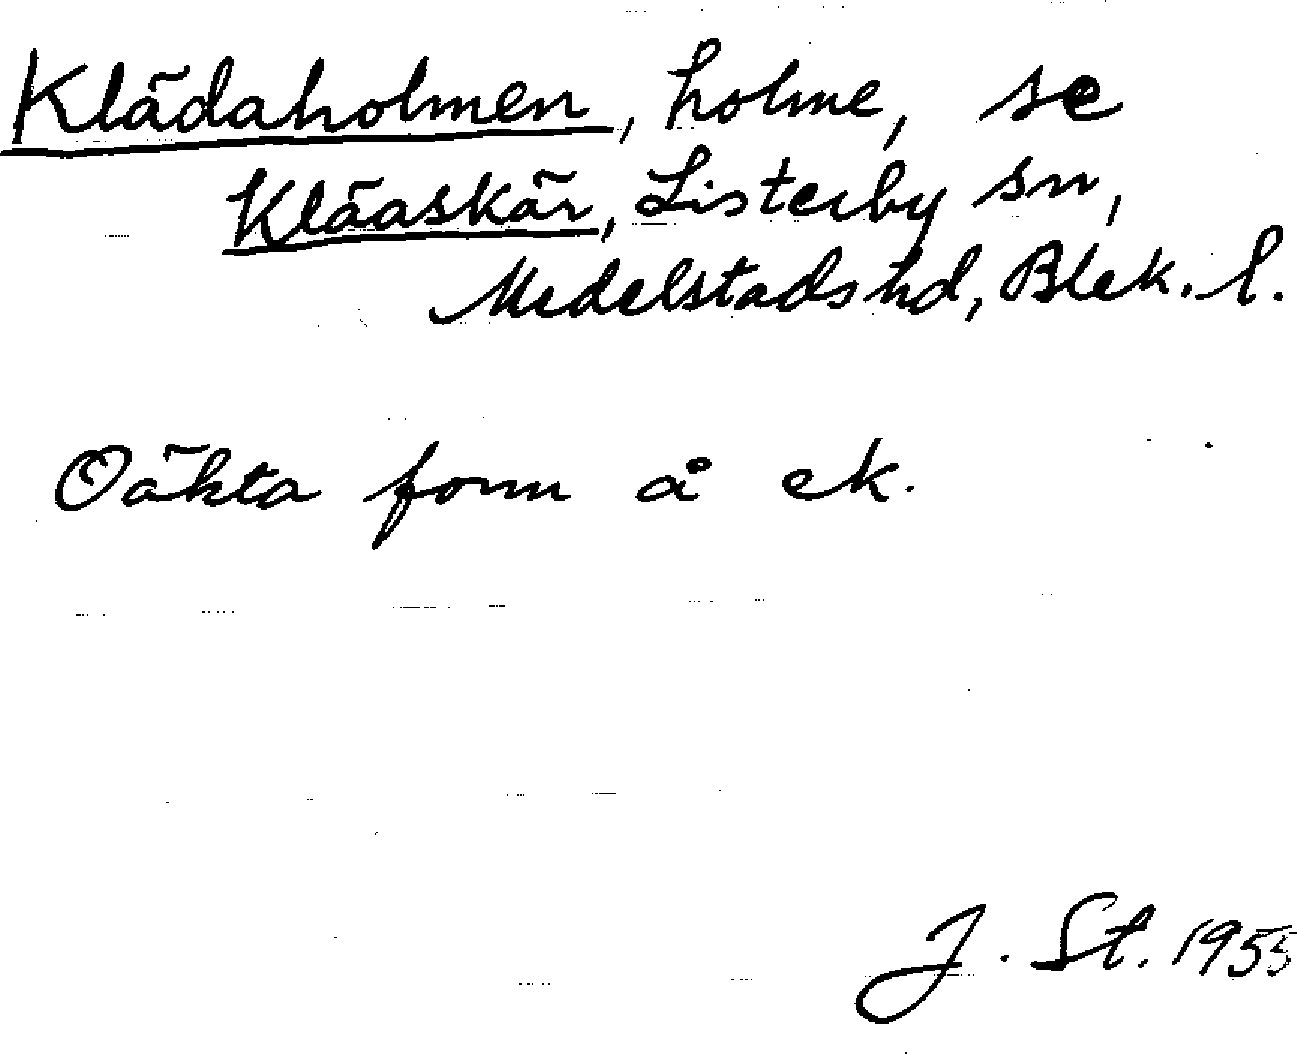 Klädaholmen, holme, se
Kläaskär, Listerby sn,
Medelstads hd, Blek. l.
Oäkta form å ek.
J. St. 1955